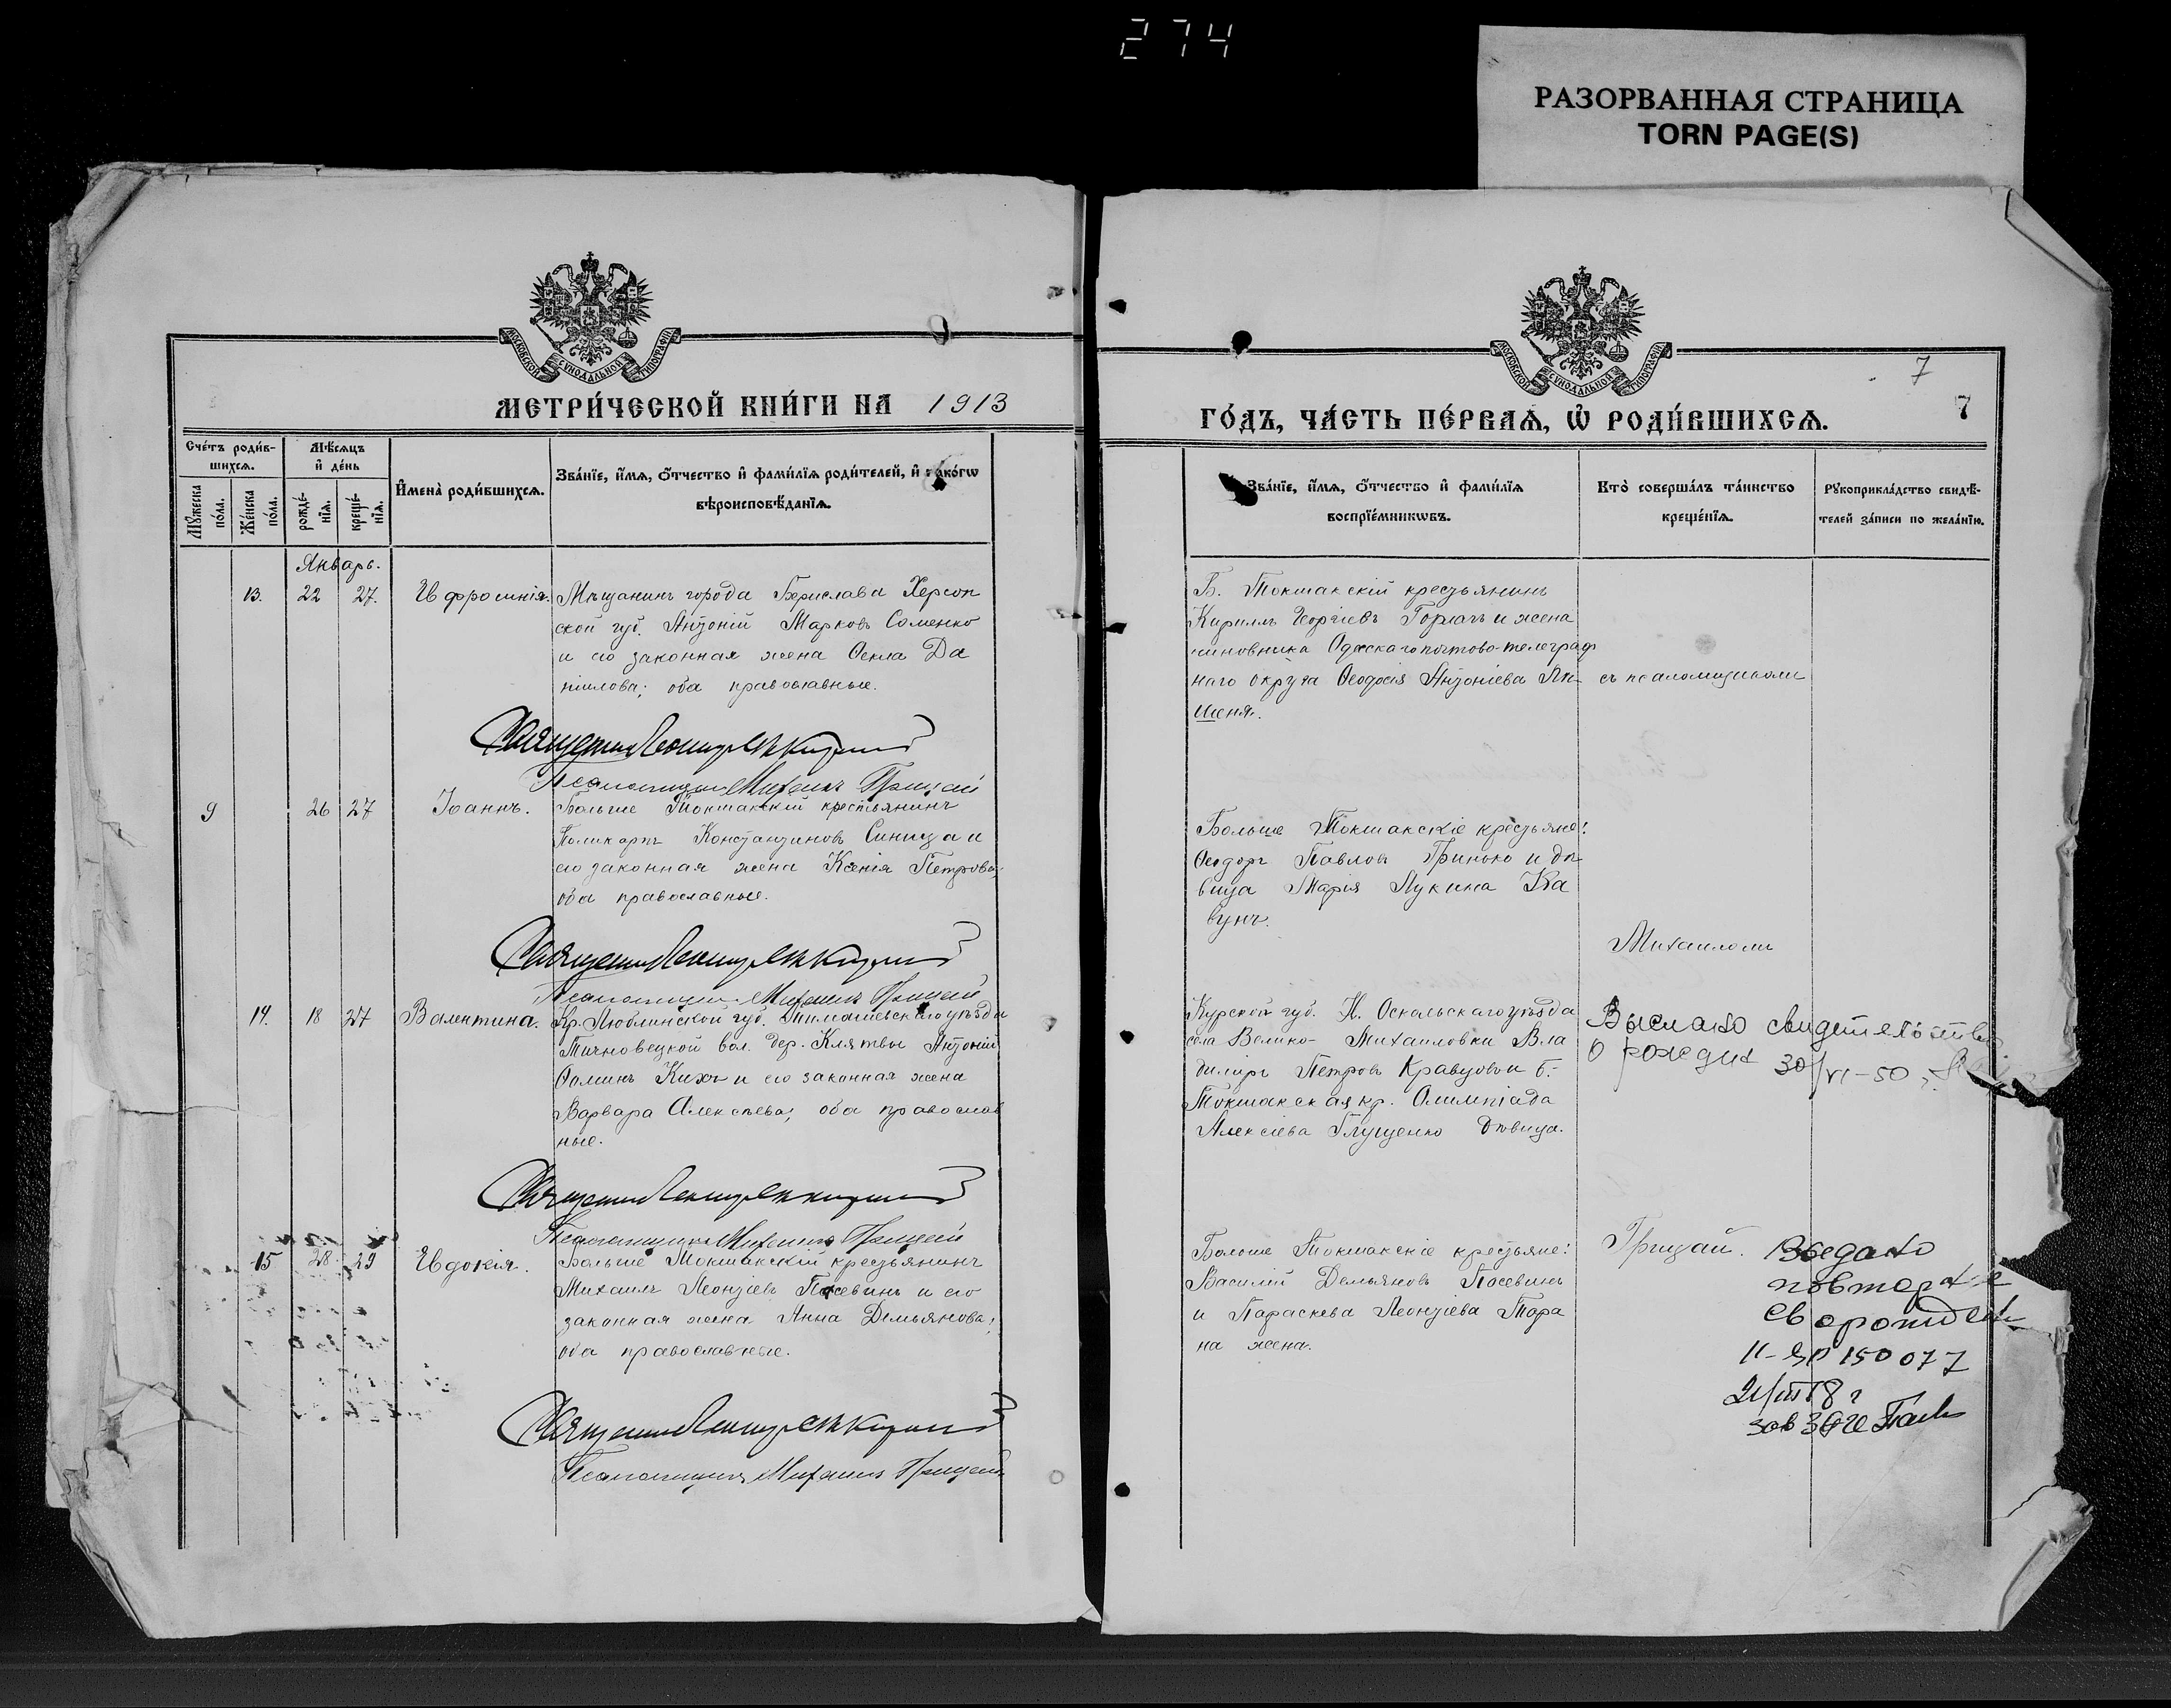 274
РАЗОРВАННАЯ СТРАНИЦА
TORN PAGE(S)
МОСКОВСКОЙ СѴНОДАЛЬНОЙ ТИПОГРАФІИ
МЕТРИ́ЧЕСКОЙ КНИ́ГИ НА 1913
Сче́тъ роди́в-
шихсѧ.
Мꙋ́жеска
по́ла.
Же́нска
по́ла.
Мѣ́сѧцъ
и҆ де́нь
рожде́-
нїѧ.
креще́-
нїѧ.
И҆мена̀ роди́вшихсѧ.
Зва́нїе, и҆́мѧ, ѻ҆́тчество и҆ фами́лїѧ роди́телей, и҆ како́гѡ
вѣроисповѣ́данїѧ.
Январь.
13. 22 27. Евфросинія. Мѣщанинъ города Берислава Херсон
ской губ. Антоній Марковъ Соменко
и его законная жена Ѳекла Да
нилова; оба православные.
Священникъ
Псаломщикъ Михаилъ Грицай
9 26 27 Іоаннъ. Больше Токмакскій крестьянинъ
Поликарпъ Константиновъ Синица и
его законная жена Ксенія Петрова,
оба православные.
Священникъ
Псаломщикъ Михаилъ Грицай
14. 18 27 Валентина. Кр. Люблинской губ. уѣзда
вол. дер. Клятвы Антоній
Ѳоминъ Кихъ и его законная жена
Варвара Алексѣева; оба православ
ные.
Священникъ
Псаломщикъ Михаилъ Грицай
15 28 29 Евдокія. Больше Токмакскій крестьянинъ
Михаилъ Леонтіевъ Посевинъ и его
законная жена Анна Демьянова;
оба православные.
Священникъ
Псаломщикъ Михаилъ Грицай
МОСКОВСКОЙ СѴНОДАЛЬНОЙ ТИПОГРАФІИ
7
7
ГО́ДЪ, ЧА́СТЬ ПЕ́РВАѦ, Ѡ҆ РОДИ́ВШИХСѦ.
Зва́нїе, и҆́мѧ, ѻ҆́тчество и҆ фами́лїѧ
воспрїе́мникѡвъ.
Кто̀ соверша́лъ та́инство
креще́нїѧ.
Рꙋкоприкла́дство свидѣ́-
телей за́писи по жела́нїю.
Б. Токмакскій крестьянинъ
Кириллъ Георгіевъ и жена
чиновника Одесскаго почтово-телеграф
наго округа Ѳеодосія Антоніева Ян
шеня.
съ псаломщикомъ
Больше Токмакскіе крестьяне:
Ѳеодоръ Павловъ Гринько и дѣ
вица Марія Лукина Ка
вунъ.
Михаиломъ
Курской губ. Н. Оскольскаго уѣзда
села Велико-Михаиловки Вла
диміръ Петровъ Кравцовъ и Б.-
Токмакская кр. Олимпіада
Алексѣева Глущенко дѣвица.
Выслано свидетельство
о рожден 30/VI-50
Больше Токмакскіе крестьяне:
Василій Демьяновъ Посевинъ
и Параскева Леонтіева Тара
на жена.
Грицай.
Выдано
повторное
св о рожден
II-ЯР 150077
зав